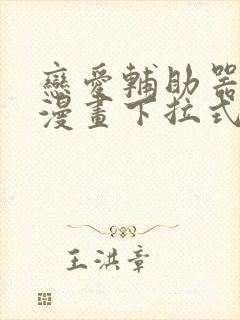 戀愛輔助器
漫畫下拉式
王洪章